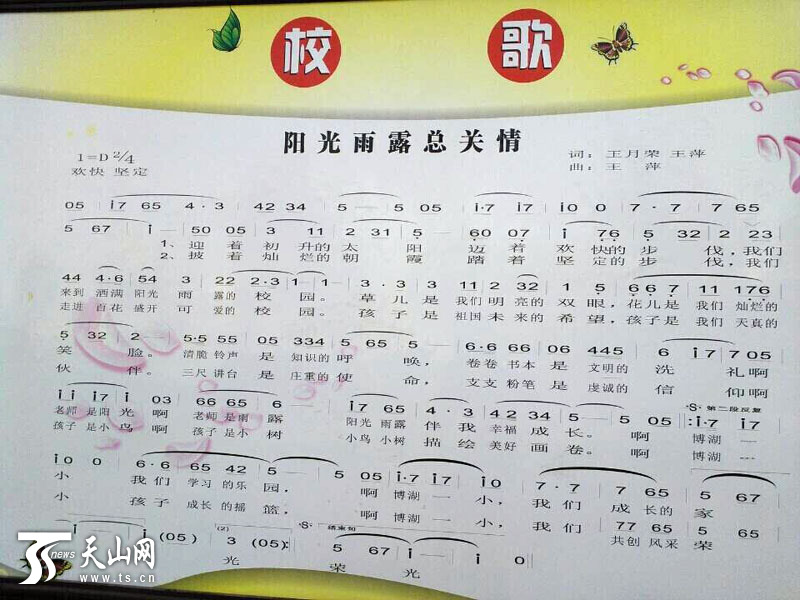 校 歌
阳光雨露总关情
1=D 2/4
欢快 坚定
词：王月荣 王萍
曲：王 萍
05 i7 65 4·3 42 34 5— 5 05 i·7 i7 i0 0 7·7 7 65
5 67 i— 50 05 3 11 2 31 5 60 07 i 76 5 32 2 23
1、迎着初升的太阳 迈着欢快的步伐，我们
2、披着灿烂的朝霞 踏着坚定的步伐，我们
44 4·6 54 3 22 2·3 1—1 3·3·3 11 2 32 1 5 66 7 11 176
来到 洒满 阳光 雨露的校园。草儿是 我们 明亮的双眼，花儿是 我们 灿烂的
走进 百花 盛开 可爱的校园。孩子是 祖国 未来的希望，孩子是 我们 天真的
5 32 2— 5·5 55 05 334 5 65 5 6·6 66 06 445 6 i7 7 05
笑脸。清脆 铃声 是 知识的呼唤，卷卷 书本 是 文明的洗礼啊
伙伴。三尺 讲台 是 庄重的使命，支支 粉笔 是 虔诚的信仰啊
ii i7 i 03 66 65 6 i7 65 4·3 42 34 5— 5 05 i·7 i7
第二段反复
老师 是阳光啊 老师 是雨露 阳光 雨露 伴我 幸福 成长。啊 博湖一
孩子 是小鸟啊 孩子 是小树 小鸟 小树 描绘 美好 画卷。啊 博湖一
i0 0 6·6 65 42 5— 5 05 i·7 i7 i0 0 7·7 7 65 5 67
小 我们 学习的乐园，啊 博湖一小，我们成长的家
小 孩子 成长的摇篮，啊 博湖一小，我们 共创 风采 荣
77 65 5 65
i— i (05) (2) 3 (05) 结束句 5 67 i— i 0
光 荣光
TS news 天山网
www.ts.cn